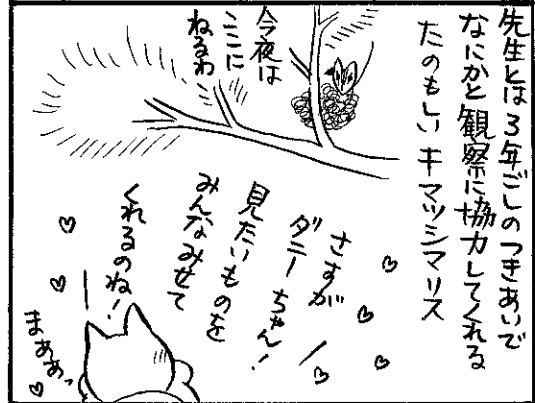 先生とは3年ごしのつきあいで
なにかと観察に協力してくれる
たのもしいキマツシマリス
今夜は
ここに
ねるわ
さすが
ダニーちゃん!
見たいものを
みんなみせて
くれるのね!
まぁぁっ